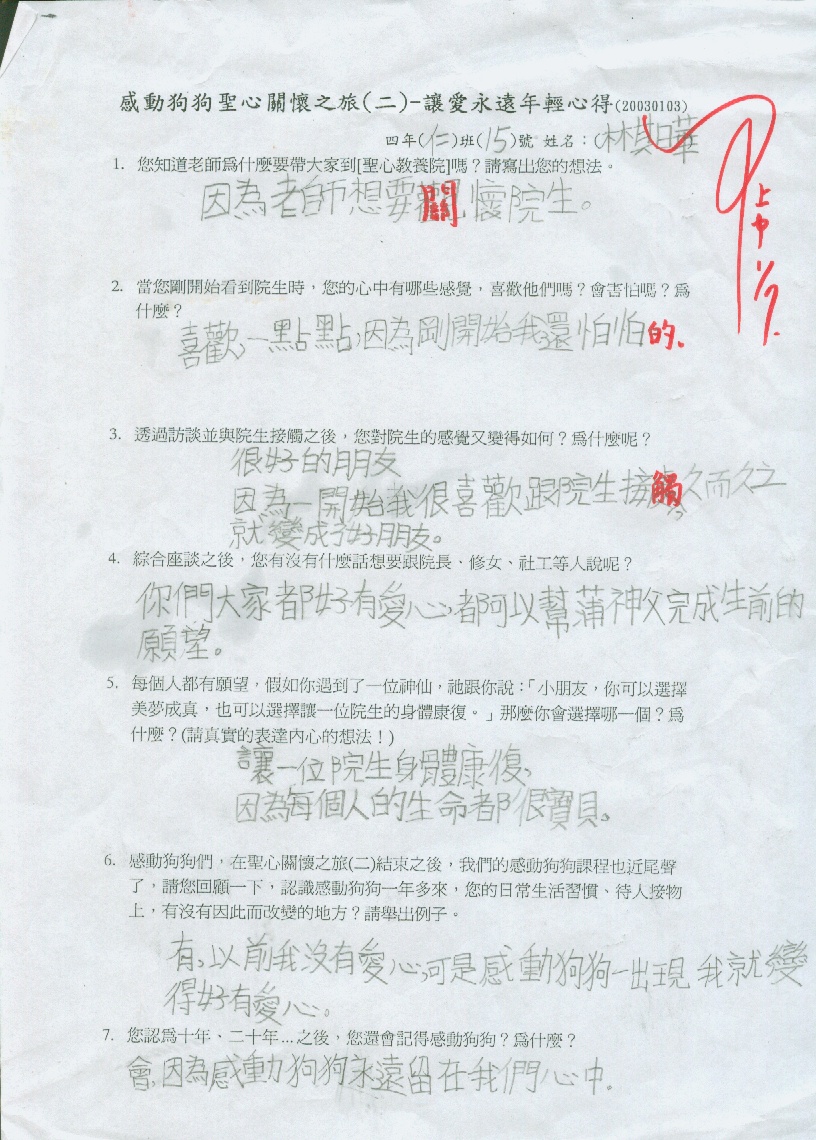 感動狗狗聖心關懷之旅(二)-讓愛永遠年輕心得(20030103)
四年(仁)班(15)號 姓名：(林
1. 您知道老師為什麼要帶大家到[聖心教養院]嗎？請寫出您的想法。
因為老師想要關懷院生。
2. 當您剛開始看到院生時，您的心中有哪些感覺，喜歡他們嗎？會害怕嗎？為
什麼？
喜歡，一點點，因為剛開始我還怕怕的。
3. 透過訪談並與院生接觸之後，您對院生的感覺又變得如何？為什麼呢？
很好的朋友
因為一開始我很喜歡跟院生接觸久而久之
就變成了好朋友。
4. 綜合座談之後，您有沒有什麼話想要跟院長、修女、社工等人說呢？
你們大家都好有愛心，都可以幫蒲神父完成生前的
願望。
5. 每個人都有願望，假如你遇到了一位神仙，祂跟你說：「小朋友，你可以選擇
美夢成真，也可以選擇讓一位院生的身體康復。」那麼你會選擇哪一個？為
什麼？(請真實的表達內心的想法！)
讓一位院生身體康復，
因為每個人的生命都很寶貝。
6. 感動狗狗們，在聖心關懷之旅(二)結束之後，我們的感動狗狗課程也近尾聲
了，請您回顧一下，認識感動狗狗一年多來，您的日常生活習慣、待人接物
上，有沒有因此而改變的地方？請舉出例子。
有，以前我沒有愛心，可是感動狗狗一出現我就變
得好有愛心。
7. 您認為十年、二十年…之後，您還會記得感動狗狗？為什麼？
會，因為感動狗狗永遠留在我們心中。